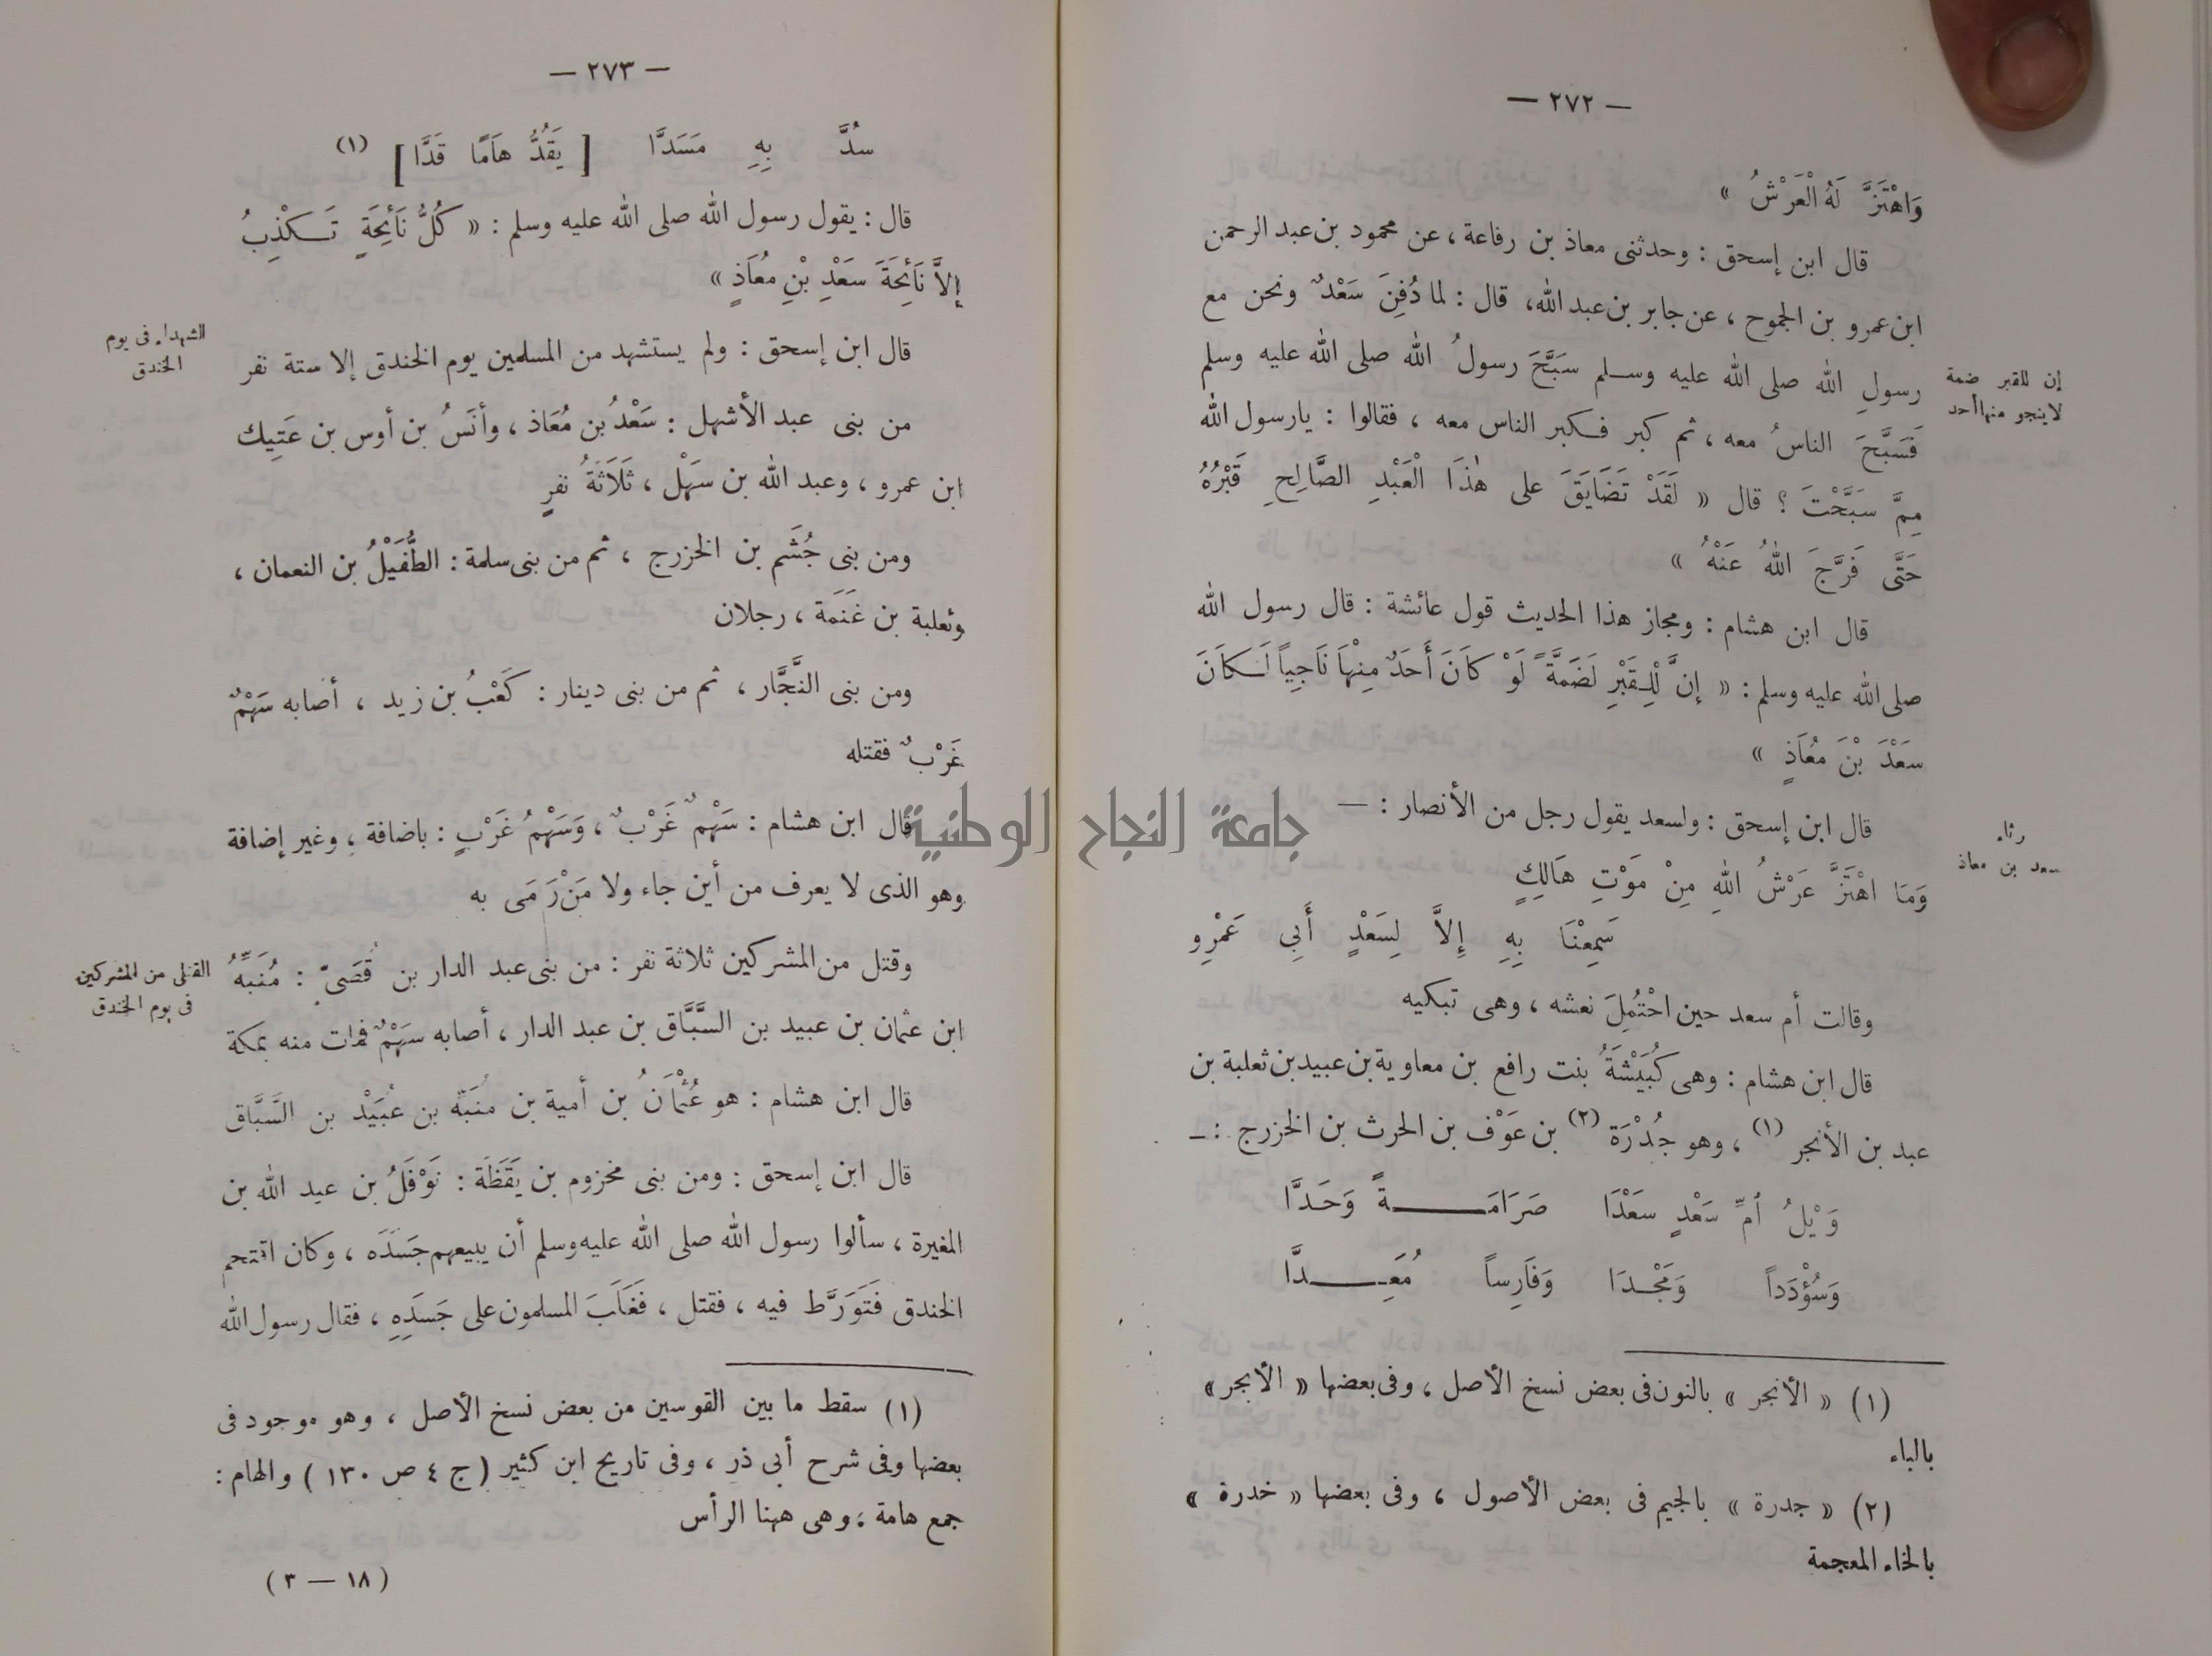 — ٢٧٢ —
وَاهْتَزَّ لَهُ الْعَرْشُ »
قال ابن إسحق : وحدثنى معاذ بن رفاعة ، عن محمود بن عبد الرحمن
ابن عمرو بن الجموح ، عن جابر بن عبد الله، قال : لما دُفِنَ سَعْدٌ ونحن مع
رسولِ الله صلى الله عليه وسلم سَبَّحَ رسولُ الله صلى الله عليه وسلم
فَسَبَّحَ الناسُ معه ، ثم كبر فكبر الناس معه ، فقالوا : يارسول الله
مِمَّ سَبَّحْتَ ؟ قال « لَقَدْ تَضَايَقَ على هٰذَا الْعَبْدِ الصَّالِحِ قَبْرُهُ
حَتَّى فَرَّجَ اللهُ عَنْهُ »
قال ابن هشام : ومجاز هذا الحديث قول عائشة : قال رسول الله
صلى الله عليه وسلم : « إنَّ لِلْقَبْرِ لَضَمَّةً لَوْ كَانَ أَحَدٌ مِنْهَا نَاجِياً لَكَانَ
سَعْدَ بْنَ مُعَاذٍ »
قال ابن إسحق : ولسعد يقول رجل من الأنصار : —
وَمَا اهْتَزَّ عَرْشُ اللهِ مِنْ مَوْتِ هَالِكٍ
سَمِعْنَا بِهِ إِلاَّ لِسَعْدٍ أَبِي عَمْرِو
وقالت أم سعد حين احْتُمِلَ نعشه ، وهى تبكيه
قال ابن هشام : وهى كُبَيْشَةُ بنت رافع بن معاوية بن عبيد بن ثعلبة بن
عبد بن الأنجر (١) ، وهو جُدْرَة (٢) بن عَوْف بن الحرث بن الخزرج : —
وَيْلُ أمِّ سَعْدٍ سَعْدَا صَرَامَةً وَحَدَّا
وَسُؤْدَداً وَمَجْدَا وَفَارِساً مُعَدَّا
(١) « الأنجر » بالنون فى بعض نسخ الأصل ، وفى بعضها « الأبجر »
بالباء
(٢) « جدرة » بالجيم فى بعض الأصول ، وفى بعضها « خدرة »
بالخاء المعجمة
إن للقبر ضمة
لاينجو منها أحد
رثاء
سعد بن معاذ
— ٢٧٣ —
سُدَّ بِهِ مَسَدَّا [ يَقُدُّ هَامًا قَدَّا ] (١)
قال : يقول رسول الله صلى الله عليه وسلم : « كُلُّ نَائِحَةٍ تَكْذِبُ
إلاَّ نَائِحَةَ سَعْدِ بْنِ مُعَاذٍ »
قال ابن إسحق : ولم يستشهد من المسلمين يوم الخندق إلا ستة نفر
من بنى عبد الأشهل : سَعْدُ بن مُعَاذ ، وأنَسُ بن أوس بن عَتِيك
ابن عمرو ، وعبد الله بن سَهْل ، ثَلَاثَةُ نفرٍ
ومن بنى جُشَم بن الخزرج ، ثم من بنى سلمة : الطُّفَيْلُ بن النعمان ،
وثعلبة بن غَنَمَة ، رجلان
ومن بنى النَّجَّار ، ثم من بنى دينار : كَعْبُ بن زيد ، أصابه سَهْمٌ
غَرْبٌ فقتله
قال ابن هشام : سَهْمٌ غَرْبٌ ، وَسَهْمُ غَرْبٍ : باضافة ، وغير إضافة
وهو الذى لا يعرف من أين جاء ولا مَنْ رَمَى به
وقتل من المشركين ثلاثة نفر : من بنى عبد الدار بن قُصَىٍّ : مُنَبِّهُ
ابن عثمان بن عبيد بن السَّبَّاق بن عبد الدار ، أصابه سَهْمٌ فمات منه بمكة
قال ابن هشام : هو عُثْمَانُ بن أمية بن مُنَبِّه بن عُبَيْد بن السَّبَّاق
قال ابن إسحق : ومن بنى مخزوم بن يَقَظَة : نَوْفَلُ بن عبد الله بن
المغيرة ، سألوا رسول الله صلى الله عليه وسلم أن يبيعهم جَسَدَه ، وكان اقتحم
الخندق فَتَوَرَّط فيه ، فقتل ، فَغَلَبَ المسلمون على جَسَدِهِ ، فقال رسول الله
(١) سقط ما بين القوسين من بعض نسخ الأصل ، وهو موجود فى
بعضها وفى شرح أبى ذر ، وفى تاريخ ابن كثير ( ج ٤ ص ١٣٠ ) والهام :
جمع هامة ، وهى ههنا الرأس
( ١٨ — ٣ )
الشهداء فى يوم
الخندق
القتلى من المشركين
فى يوم الخندق
جامعة النجاح الوطنية